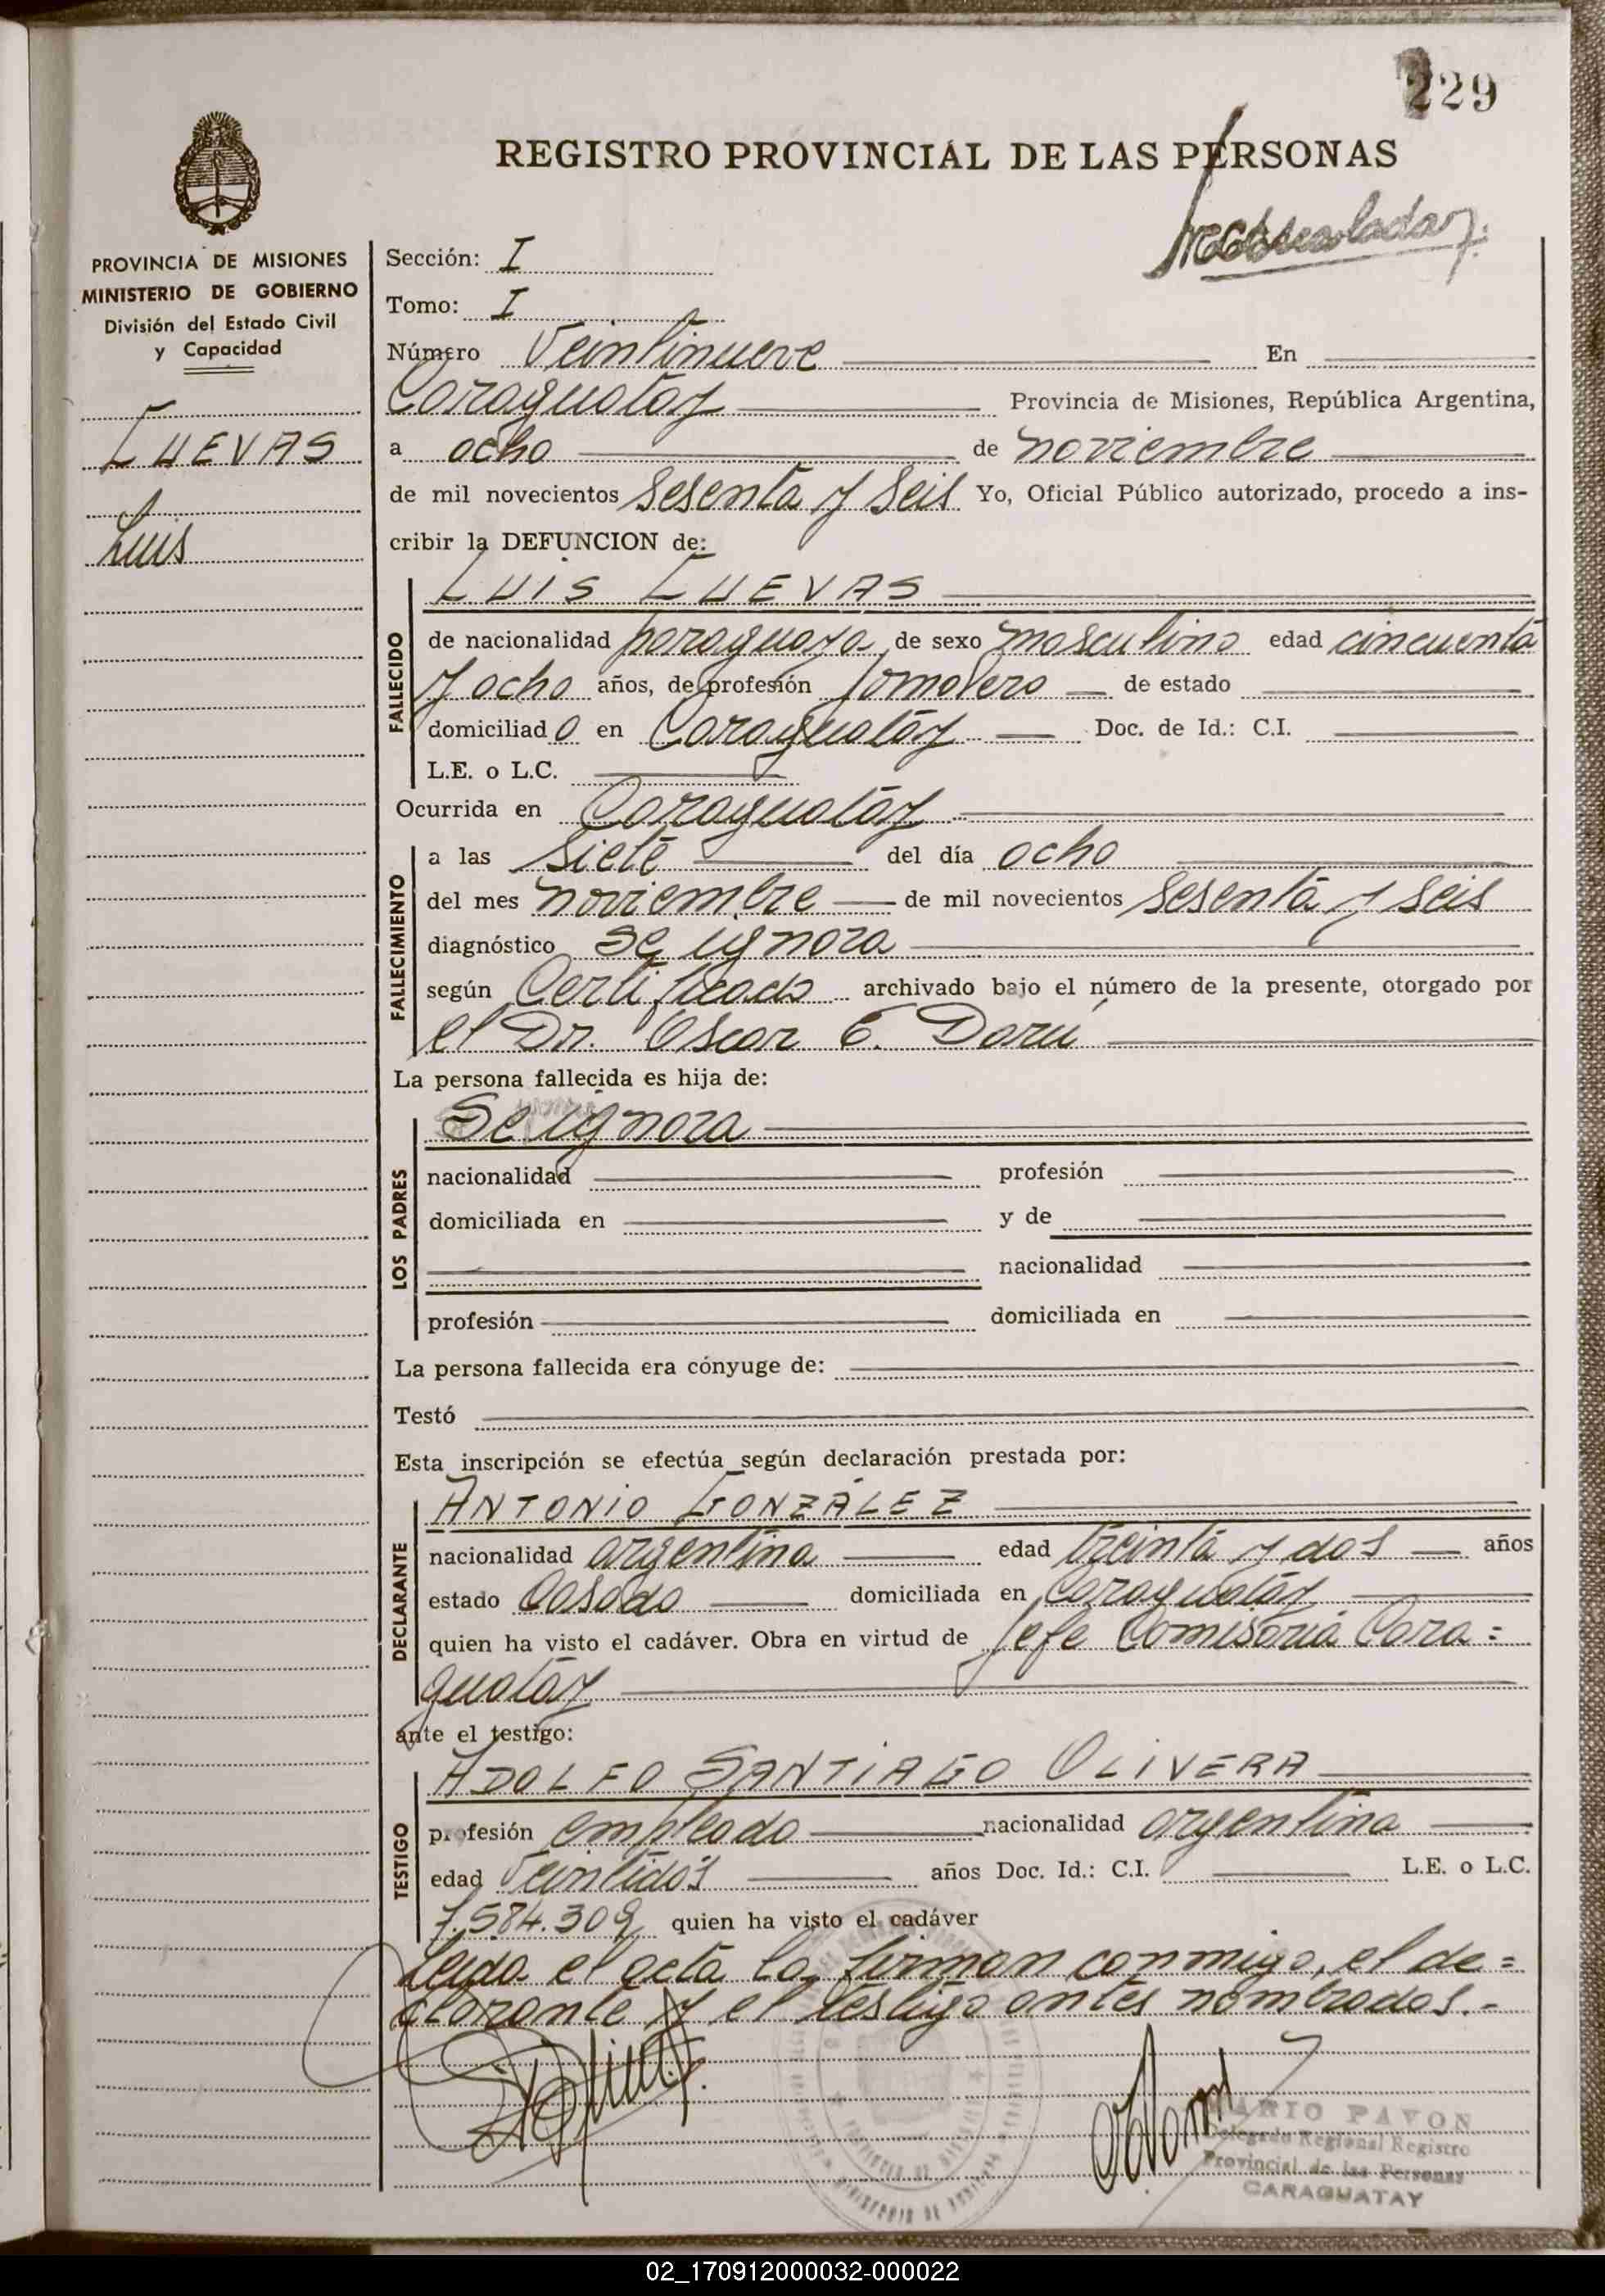 229
REGISTRO PROVINCIAL DE LAS PERSONAS
PROVINCIA DE MISIONES
MINISTERIO DE GOBIERNO
División del Estado Civil
y Capacidad
CUEVAS
Luis
Sección: I
Tomo: I
Número Veintinueve En
Caraguatay Provincia de Misiones, República Argentina,
a ocho de noviembre
de mil novecientos Sesenta y Seis Yo, Oficial Público autorizado, procedo a ins-
cribir la DEFUNCION de:
LUIS CUEVAS
FALLECIDO
de nacionalidad paraguaya de sexo masculino edad cincuenta
y ocho años, de profesión Jornalero de estado
domiciliado en Caraguatáy Doc. de Id.: C.I.
L.E. o L.C.
Ocurrida en Caraguatáy
FALLECIMIENTO
a las Siete del día ocho
del mes noviembre de mil novecientos Sesenta y seis
diagnóstico se ignora
según Certificado archivado bajo el número de la presente, otorgado por
el Dr. Oscar C. Darú
La persona fallecida es hija de:
LOS PADRES
Se ignora
nacionalidad profesión
domiciliada en y de
nacionalidad
profesión domiciliada en
La persona fallecida era cónyuge de:
Testó
Esta inscripción se efectúa según declaración prestada por:
DECLARANTE
ANTONIO GONZÁLEZ
nacionalidad argentina edad treinta y dos años
estado Casado domiciliada en Caraguatáy
quien ha visto el cadáver. Obra en virtud de Jefe Comisaría Cara=
guatáy
ante el testigo:
TESTIGO
ADOLFO SANTIAGO OLIVERA
profesión empleado nacionalidad argentina
edad Veintidós años Doc. Id.: C.I. L.E. o L.C.
7.584.309 quien ha visto el cadáver
Leida el acta la firman conmigo, el de=
clarante y el testigo antes nombrados.-
MARIO PAVON
Delegado Regional Registro
Provincial de las Personas
CARAGUATAY
02_170912000032-000022